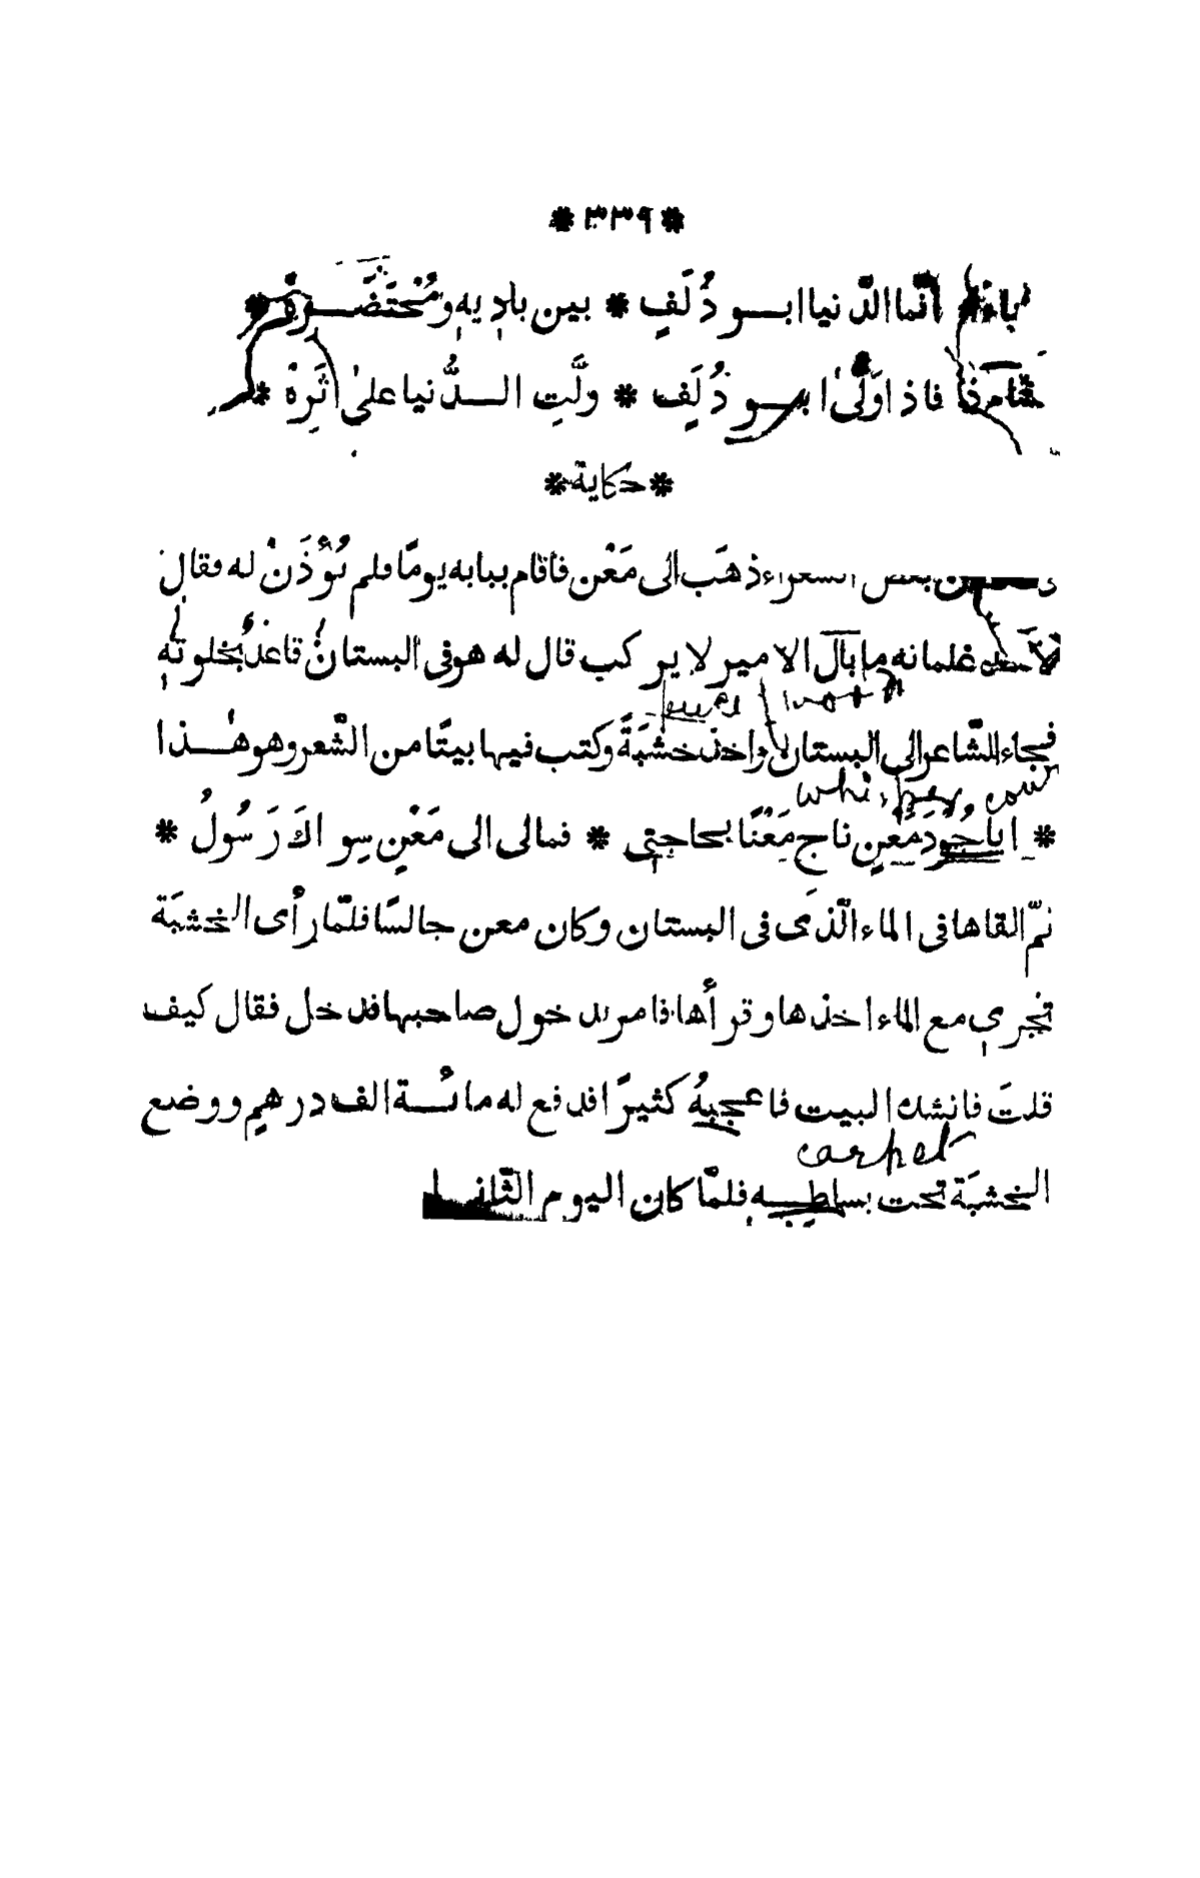 * ٣٣٩ *
انّما الدّنيا ابــو دُلَفٍ * بين باديهِ ومُحْتَضَــرِهْ *
فاذا ولّٰى ابــو دُلَفٍ * ولَّتِ الــدُّنيا علىٰ اثَرِهْ *
* حكاية *
بعض الشعراء ذهَب الى مَعْن فاقام ببابه يومًا فلم يُؤْذَنْ له فقال
غلمانه ما بال الامير لا يركب قال له هو فى البستان قاعدٌ بخلوتهِ
فجاء الشّاعر الى البستان واخذ خشبَةً وكتب فيها بيتًا من الشّعر وهو هٰــذا
whisper
* اياجُودَ مَعْنٍ ناجِ مَعْنًا بحاجتِى * فمالى الى مَعْنٍ سِواكَ رَسُولُ *
ثمّ القاها فى الماء الّذى فى البستان وكان معن جالسًا فلمّا رأى الخشبَة
تجرى مع الماء اخذها وقرأها فامر بدخول صاحبها فدخل فقال كيف
قلتَ فانشد البيت فاعجبهُ كثيرًا فدفع له مائــة الف درهم ووضع
carpet
الخشبَة تحت بساطــهِ فلمّا كان اليوم الثّانى